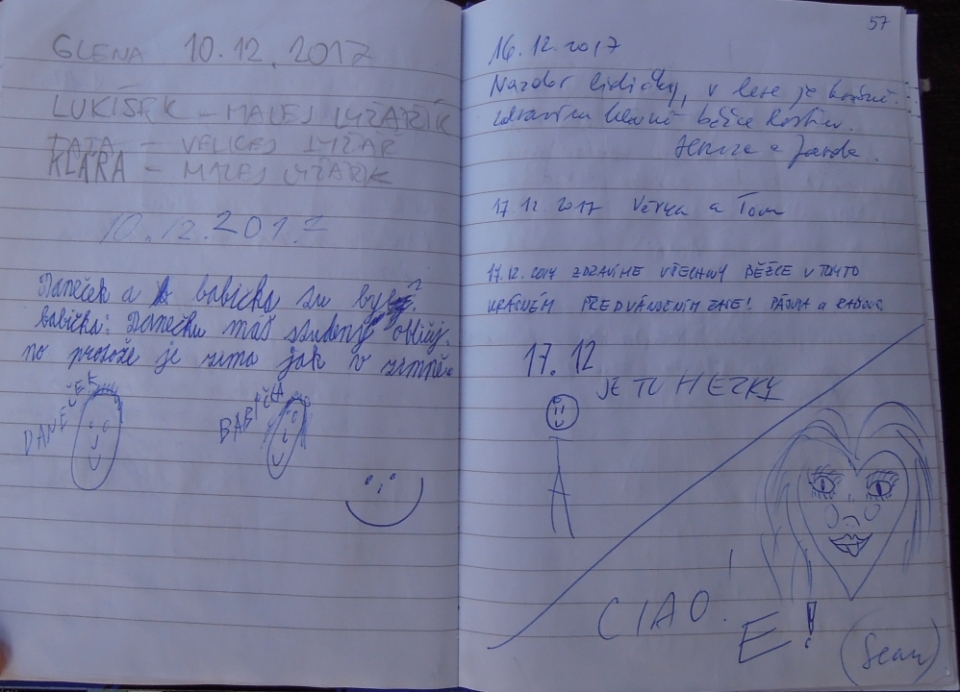 GLENA 10.12.2017
LUKÍŠEK – MALEJ LYŽAŘÍK
TÁTA – VELIKEJ LYŽAŘ
KLÁRA – MALEJ LYŽAŘK
10.12.2017
Daneček a babička su byly?
babička: Danečku máš studený obličej.
no protože je zima jak v zimně.
DANEČEK
BABIČKA
57
16.12.2017
Nazdar lidičky, v lese je krásně.
zdravím hlavně běžce
a Jarda.
17 12 2017 Verka a Tom
17.12.2017 ZDRAVÍME VŠECHNY BĚŽCE V TOMTO
KRÁSNÉM PŘEDVÁNOČNÍM ČASE! a
17.12
JE TU HEZKY
CIAO!
E!
(Sean)